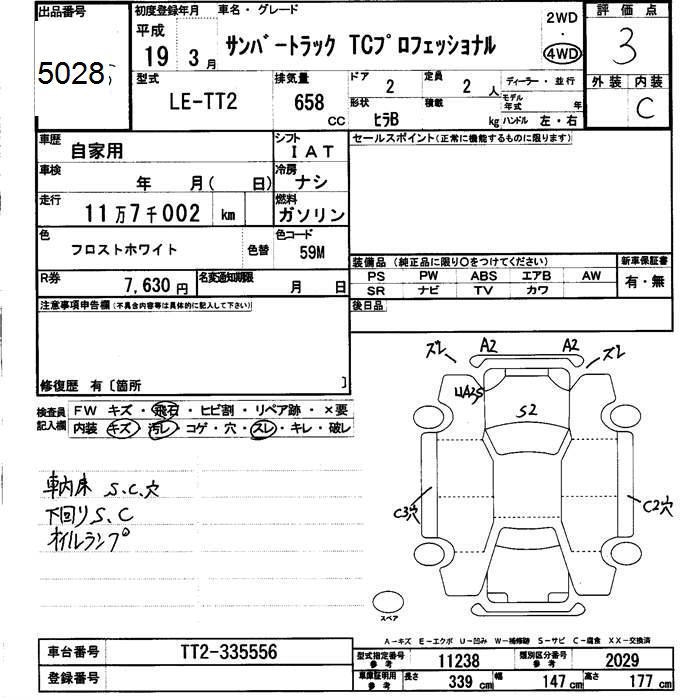 出品番号 初度登録年月 車名・グレード 2WD 評価点
5028 平成 19 3月 サンバートラック TCプロフェッショナル 4WD 3
型式 排気量 ドア 定員 ディーラー・並行 外装 内装
LE-TT2 658 CC 2 2 人 モデル年式 年 C
形状 積載
ヒラB kg ハンドル 左・右
車歴 自家用 シフト IAT セールスポイント(正常に機能するものに限ります)
車検 年 月( 日) 冷房 ナシ
走行 11万7千002 km 燃料 ガソリン
色 フロストホワイト 色替 色コード 59M
装備品 (純正品に限り○をつけてください) 新車保証書
R券 7,630円 名変通知期限 月 日 PS PW ABS エアB AW 有・無
SR ナビ TV カワ
注意事項申告欄(不具合内容等は具体的に記入して下さい) 後日品
修復歴 有〔箇所 〕
検査員記入欄 FW キズ・飛石・ヒビ割・リペア跡・×要
内装 キズ・汚レ・コゲ・穴・スレ・キレ・破レ
ズレ A2 A2 ズレ
S2
車内床 S.C.穴
下回りS.C
オイルランプ
C3穴 C2穴
スペア
A-キズ E-エクボ U-凹み W-補修跡 S-サビ C-腐食 XX-交換済
車台番号 TT2-335556 型式指定番号 参考 11238 類別区分番号 参考 2029
登録番号 車庫証明用 参考 長さ 339 cm 幅 147 cm 高さ 177 cm